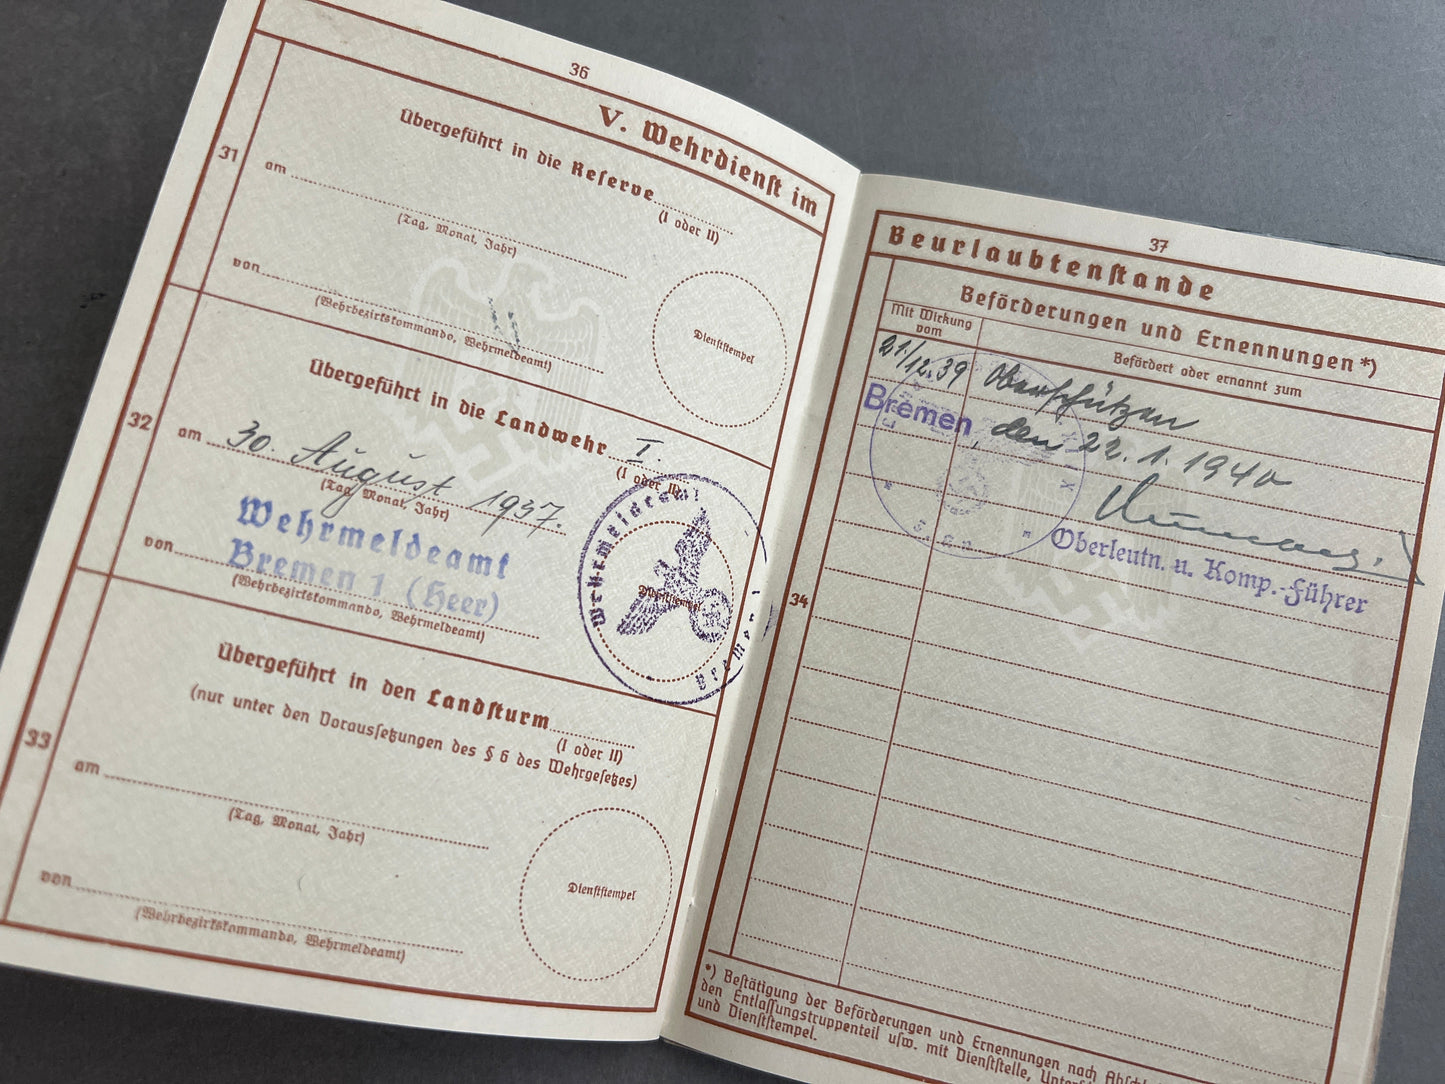 36
V. Wehrdienst im
31
Übergeführt in die Reserve
(I oder II)
am
(Tag, Monat, Jahr)
von
(Wehrbezirkskommando, Wehrmeldeamt)
Dienststempel
32
Übergeführt in die Landwehr I.
(I oder II)
am 30. August 1937.
(Tag, Monat, Jahr)
Wehrmeldeamt
von Bremen 1 (Heer)
(Wehrbezirkskommando, Wehrmeldeamt)
Wehrmeldeamt Bremen 1
Dienststempel
33
Übergeführt in den Landsturm
(I oder II)
(nur unter den Voraussetzungen des § 6 des Wehrgesetzes)
am
(Tag, Monat, Jahr)
von
(Wehrbezirkskommando, Wehrmeldeamt)
Dienststempel
37
Beurlaubtenstande
Beförderungen und Ernennungen*)
Mit Wirkung vom
Befördert oder ernannt zum
21./12.39 Oberschützen
Bremen, den 22.1.1940
Oberleutn. u. Komp.-Führer
34
*) Bestätigung der Beförderungen und Ernennungen nach
den Entlassungstruppenteil usw. mit Dienststelle,
und Dienststempel.